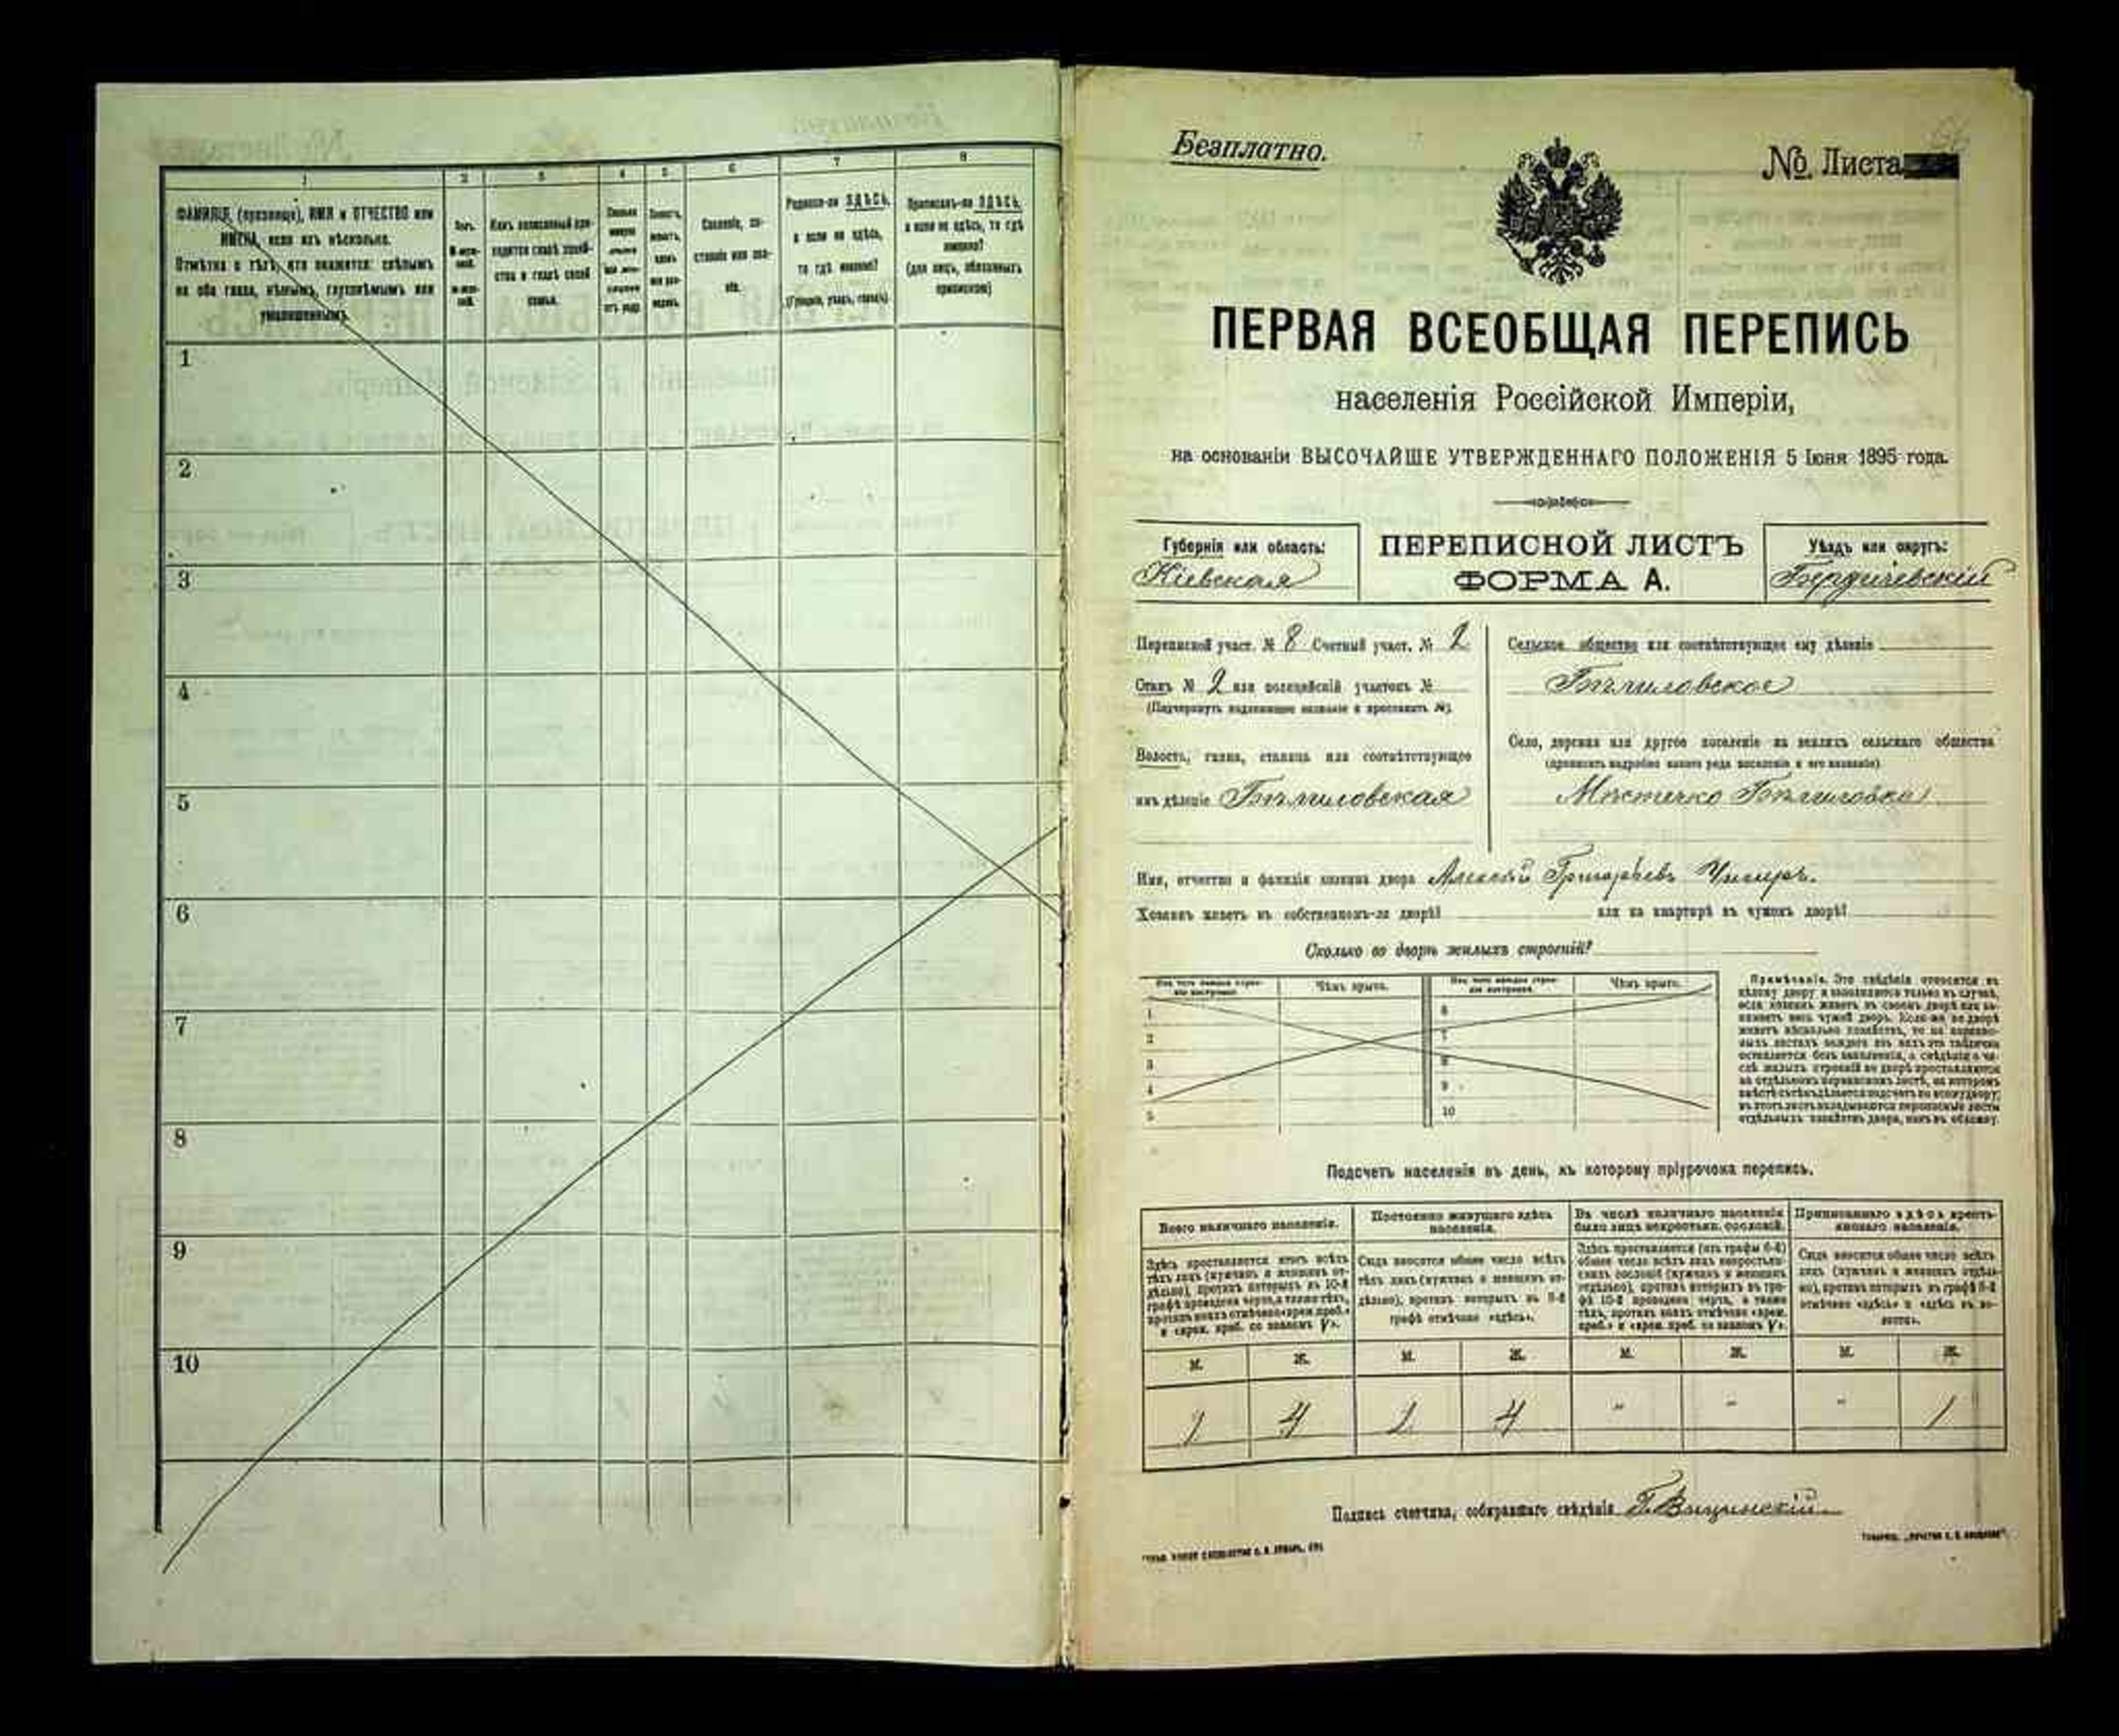 1
2
3
4
5
6
7
8
ФАМИЛІЯ, (прозвище), ИМЯ и ОТЧЕСТВО или
ИМЕНА, если ихъ нѣсколько.
Отмѣтка о тѣхъ, кто окажется: слѣпымъ
на оба глаза, нѣмымъ, глухонѣмымъ или
умалишеннымъ.
Полъ.
Какъ записанный при-
ходится главѣ хозяй-
ства и главѣ своей
семьи.
Сословіе, со-
стояніе или зва-
ніе.
Родился-ли ЗДѢСЬ,
а если не здѣсь,
то гдѣ именно?
(Губернія, уѣздъ, городъ)
Приписанъ-ли ЗДѢСЬ,
а если не здѣсь, то гдѣ
именно?
(для лицъ, обязанныхъ
припискою)
1
2
3
4
5
6
7
8
9
10
Безплатно.
№ Листа
ПЕРВАЯ ВСЕОБЩАЯ ПЕРЕПИСЬ
населенія Россійской Имперіи,
на основаніи ВЫСОЧАЙШЕ УТВЕРЖДЕННАГО ПОЛОЖЕНІЯ 5 Іюня 1895 года.
Губернія или область:
Кіевская
ПЕРЕПИСНОЙ ЛИСТЪ
ФОРМА А.
Уѣздъ или округъ:
Бердичевскій
Переписной участ. № 8 Счетный участ. № 2
Станъ № 2 или полицейскій участокъ №
(Подчеркнуть надлежащее названіе и проставить №).
Волость, гмина, станица или соотвѣтствующее
имъ дѣленіе Бѣлиловская
Сельское общество или соотвѣтствующее ему дѣленіе
Бѣлиловское
Село, деревня или другое поселеніе на земляхъ сельскаго общества
(прописать подробно какого рода поселеніе и его названіе)
Мѣстечко Бѣлиловка
Имя, отчество и фамилія хозяина двора Алексѣй Григорьевъ
Хозяинъ живетъ въ собственномъ-ли дворѣ? или на квартирѣ въ чужомъ дворѣ?
Сколько во дворѣ жилыхъ строеній?
Изъ чего каждое строе-
ніе построено.
Чѣмъ крыто.
Изъ чего каждое строе-
ніе построено.
Чѣмъ крыто.
1
2
3
4
5
6
7
8
9
10
Примѣчаніе. Это свѣдѣнія относятся къ
цѣлому двору и заполняются только въ случаѣ,
если хозяинъ живетъ въ своемъ дворѣ или за-
нимаетъ весь чужой дворъ. Если-же во дворѣ
живетъ нѣсколько хозяйствъ, то на перепис-
ныхъ листахъ каждаго изъ нихъ эта табличка
оставляется безъ заполненія, а свѣдѣнія о чи-
слѣ жилыхъ строеній во дворѣ проставляются
на отдѣльномъ переписномъ листѣ, на которомъ
вмѣстѣ съ тѣмъ дѣлается подсчетъ по всему двору;
въ этотъ листъ вкладываются переписные листы
отдѣльныхъ хозяйствъ двора, какъ въ обложку.
Подсчетъ населенія въ день, къ которому пріурочена перепись.
Всего наличнаго населенія.
Постоянно живущаго здѣсь
населенія.
Въ числѣ наличнаго населенія
было лицъ некрестьян. сословій.
Приписаннаго здѣсь кресть-
янскаго населенія.
Здѣсь проставляется итогъ всѣхъ
тѣхъ лицъ (мужчинъ и женщинъ от-
дѣльно), противъ которыхъ въ 10-й
графѣ проведена черта, а также тѣхъ,
противъ коихъ отмѣчено «врем. преб.»
и «врем. преб. со знакомъ V».
Сюда вносится общее число всѣхъ
тѣхъ лицъ (мужчинъ и женщинъ от-
дѣльно), противъ которыхъ въ 9-й
графѣ отмѣчено «здѣсь».
Здѣсь проставляется (изъ графы 6-й)
общее число всѣхъ лицъ некрестьян-
скихъ сословій (мужчинъ и женщинъ
отдѣльно), противъ которыхъ въ гра-
фѣ 10-й проведена черта, а также
тѣхъ, противъ коихъ отмѣчено «врем.
преб.» и «врем. преб. со знакомъ V».
Сюда вносится общее число всѣхъ
лицъ (мужчинъ и женщинъ отдѣль-
но), противъ которыхъ въ графѣ 8-й
отмѣчено «здѣсь» и «здѣсь въ во-
лости».
М. Ж. М. Ж. М. Ж. М. Ж.
1 4 1 4 " " " 1
Подпись счетчика, собиравшаго свѣдѣнія